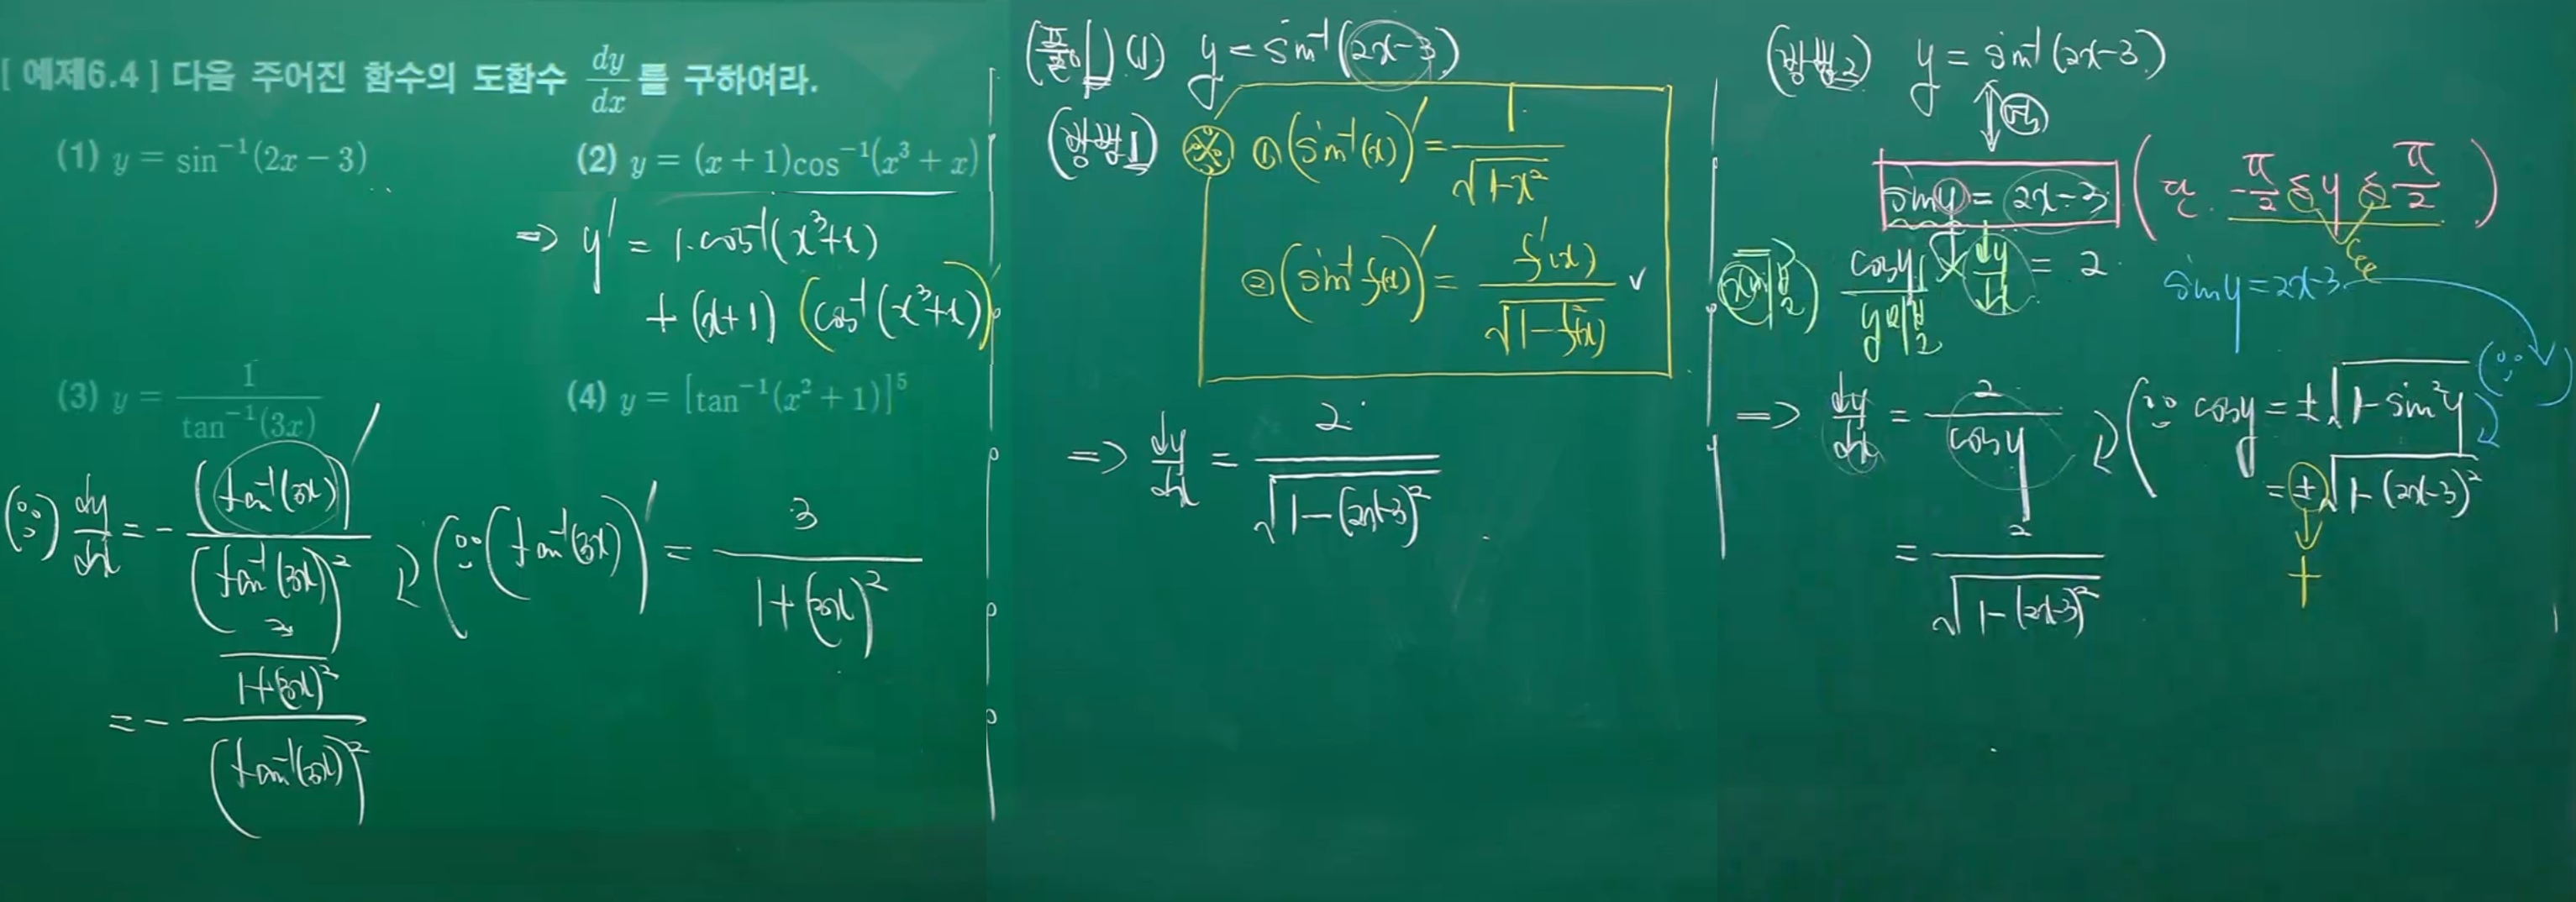 [ 예제6.4 ] 다음 주어진 함수의 도함수 dy/dx 를 구하여라.
(1) y = sin⁻¹(2x − 3)
(2) y = (x + 1)cos⁻¹(x³ + x)
⇒ y′ = 1·cos⁻¹(x³+x)
+ (x+1) (cos⁻¹(x³+x))′
(3) y = 1/tan⁻¹(3x)
(4) y = [tan⁻¹(x² + 1)]⁵
(∵) dy/dx = − (tan⁻¹(3x))′/(tan⁻¹(3x))² (∵ (tan⁻¹(3x))′ = 3/(1+(3x)²)
= − (3/(1+(3x)²))/(tan⁻¹(3x))²
(풀이) (1) y = sin⁻¹(2x−3)
(방법1) ※ ① (sin⁻¹(x))′ = 1/√(1−x²)
② (sin⁻¹f(x))′ = f′(x)/√(1−f²(x)) ✓
⇒ dy/dx = 2/√(1−(2x−3)²)
(방법2) y = sin⁻¹(2x−3)
⇕
sin y = 2x−3 (단, −π/2 ≤ y ≤ π/2)
cos y × dy/dx = 2
sin y = 2x−3
⇒ dy/dx = 2/cos y (∵ cos y = ±√(1−sin²y) (∵)
= ±√(1−(2x−3)²)
= 2/√(1−(2x−3)²)
+